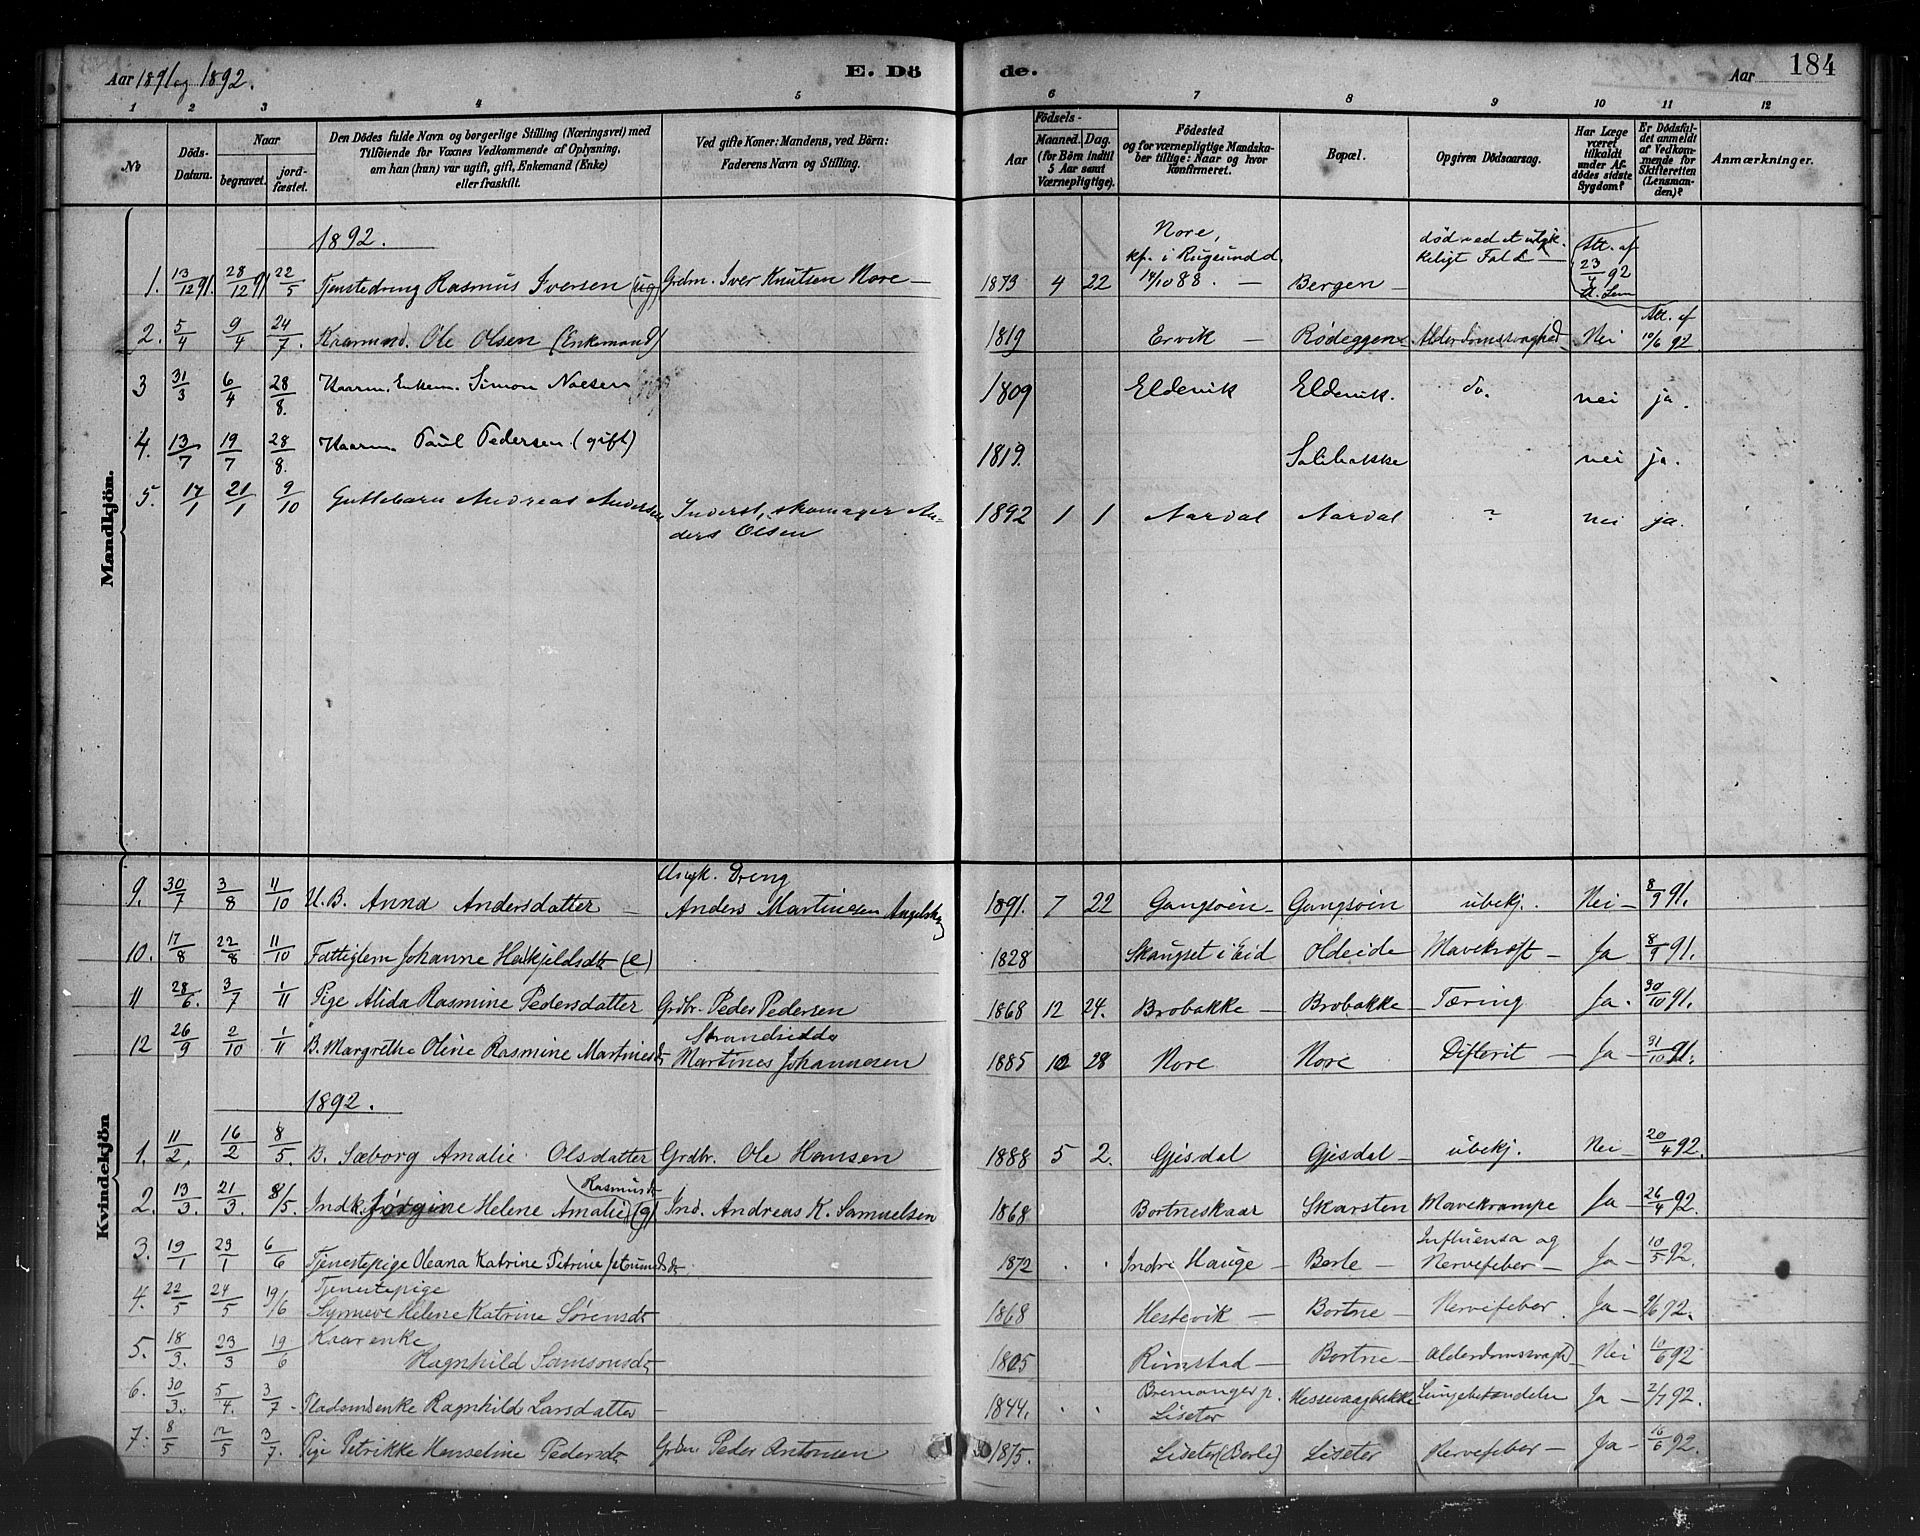 Aar 1891 og 1892.
E. Döde.
Aar 184
1 2 3 4 5 6 7 8 9 10 11 12
No
Döds-Datum.
Naar
begravet.
jordfæstet.
Den Dödes fulde Navn og borgerlige Stilling (Næringsvei) med
Tilföiende for Voxnes Vedkommende af Oplysning,
om han (hun) var ugift, gift, Enkemand (Enke)
eller fraskilt.
Ved gifte Koner: Mandens, ved Börn:
Faderens Navn og Stilling.
Födsels-
Aar
Maaned. Dag.
(for Börn indtil
5 Aar samt
Værnepligtige).
Födested
og for værnepligtige Mandska-
ber tillige: Naar og hvor
konfirmeret.
Bopæl.
Opgiven Dödsaarsag.
Har Læge
været
tilkaldt
under Af-
dödes sidste
Sygdom?
Er Dödsfal-
det anmeldt
af Vedkom-
mende for
Skifteretten
(Lensman-
den)?
Anmærkninger.
Mandkjön.
1892.
1. 13/12 91. 28/12 91 22/5 Tjenestedreng Rasmus Iversen (ug) Grdm. Iver Knutsen Nore — 1873 4 22 Nore, kf. i Rugsund d. 14/10 88. — Bergen — død ved et ulykkeligt Fald — Att. af 23/4 92
2. 5/4 9/4 24/7. Kaarmand. Ole Olsen (Enkemand) 1819 Ervik — Rødeggen Alderdomssvaghed Nei Att. af 10/6 92.
3 31/3 6/4 28/8. Kaarm. Enkem. Simon Nilsen 1809 Eldevik Eldevik. do. nei ja.
4. 13/7 19/7 28/8. Kaarm. Paul Pedersen (gift) 1819. Salibakke nei ja.
5. 17/1 21/1 9/10 Guttebarn Andreas Andersen Inderst, skomager Anders Olsen 1892 1 1 Aardal Aardal ? nei ja.
Kvindekjön
9. 30/7 3/8 11/10 U.B. Anna Andersdatter — Ungk. Dreng Anders Martinesen 1891. 7 22 Gangsøen — Gangsøen ubekj. Nei — 8/9 91.
10. 17/8 22/8 11/10 Fattiglem Johanne (e) 1828 Skaugset i Eid Oldeide Mavekræft — Ja 8/9 91.
11 28/6. 3/7 1/11 Pige Alida Rasmine Pedersdatter Grdbr. Peder Pedersen 1868 12 24. Brobakke — Brobakke Tæring Ja — 30/10 91.
12 26/9 2/10 1/11 B. Margrethe Oline Rasmine Martinesdr Strandsidder Martines Johannesen 1885 10 28 Nore Nore Difterit — Ja — 31/10 91.
1892.
1. 11/2. 16/2 8/5. B. Sæborg Amalie Olsdatter Grdbr. Ole Hansen 1888 5 2. Gjisdal Gjisdal — ubekj. Nei — 20/4 92.
2. 13/3. 21/3. 8/5. Indk. Jørgine Helene Amalie Rasmusdr (g) Ind. Andreas K. Samuelsen 1868 Bortneskaar Skarsten Mavekrampe Ja — 26/4 92.
3. 19/1 23/1 6/6 Tjenestepige Oleana Katrine Petrine 1872 Indre Hauge — Berle — Influensa og Nervefeber — Ja — 10/5 92.
4. 22/5 24/5 19/6 Tjenestepige Synneve Helene Katrine Sørensdr 1868 Hestevik — Bortne — Nervefeber. Ja — 9/6 92.
5. 18/3. 23/3 19/6 Kaarenke Ragnhild Samsonsdr 1805 Rimstad — Bortne — Alderdomssvaghed Nei 10/6 92
6. 30/3. 5/4. 3/7 — Pladsmdsenke Ragnhild Larsdatter — 1844. Bremanger p. Liseter Hessevaagbakke Lungebetændelse Ja — 2/7 92.
7. 8/5 12/5 3/7. Pige Petrikke Hanseline Pedersdr Grdm Peder Antonsen 1875. Liseter (Berle) Liseter Nervefeber — Ja — 16/6 92.